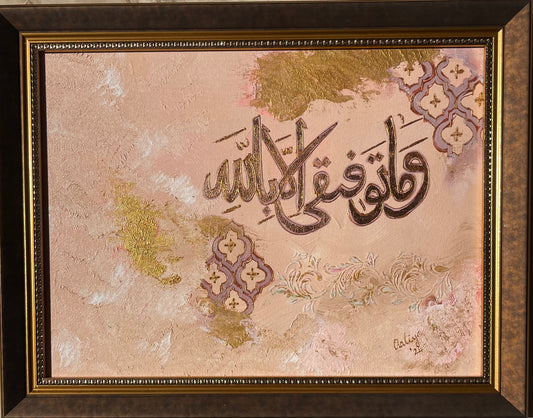 وما توفيقي إلا بالله
Aaliya
'22